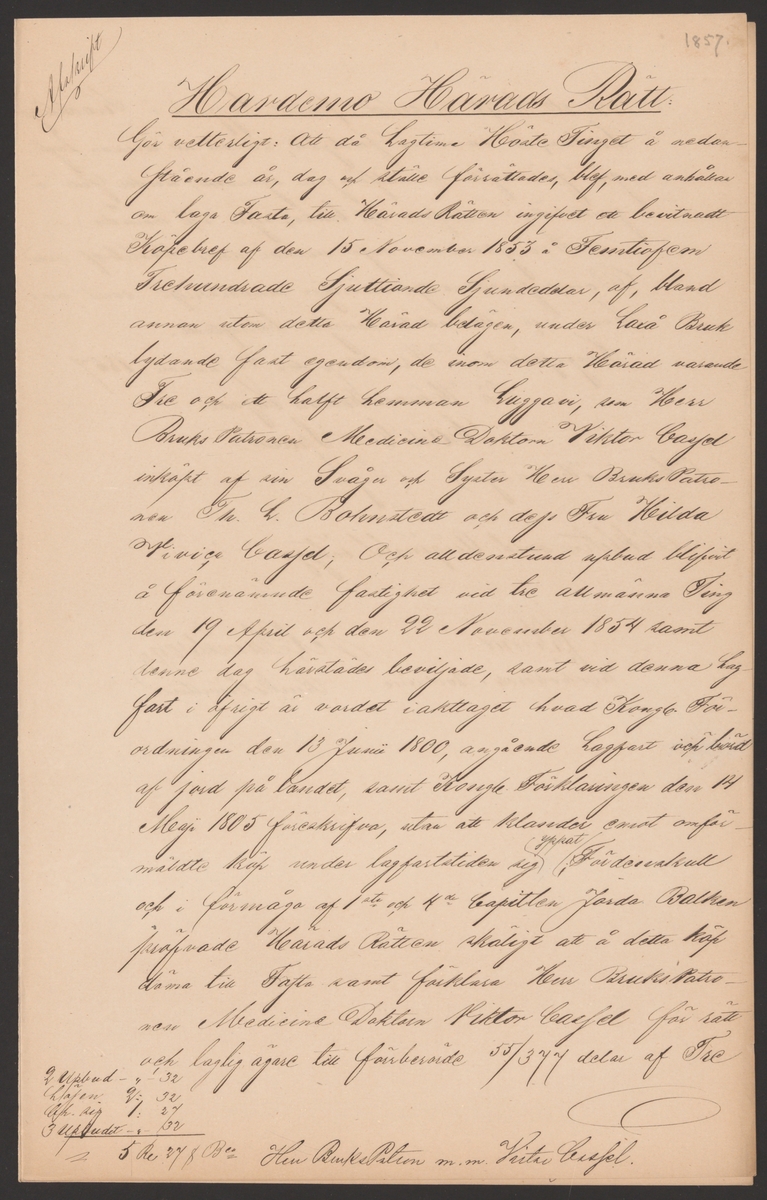 Afskrift
1857.
Hardemo Härads Rätt:
Gör vetterligt: Att då Lagtima Höste Tinget å nedan-
stående år, dag och ställe förrättades, blef, med anhållan
om laga Fasta, till HäradsRätten ingifvet ett bevitnadt
Köpebref af den 15 November 1853 å Femtiofem
Trehundrade Sjuttionde Sjundedelar, af, bland
annan utom detta Härad belägen, under Laxå Bruk
lydande fast egendom, de inom detta Härad varande
Tre och ett halft hemman Luggavi, som Herr
BruksPatronen Medicine Doktorn Viktor Cassel
inköpt af sin Svåger och Syster Herr BruksPatro-
nen Th. L. Bohnstedt och dess Fru Hilda
Vivica Cassel; Och alldenstund upbud blifvit
å förenämnde fastighet vid tre allmänna Ting
den 19 April och den 22 November 1854 samt
denne dag härstädes beviljade, samt vid denna Lag-
fart i öfrigt är vordet iakttaget hvad Kongl. För-
ordningen den 13 Junii 1800, angående Lagfart och börd
af jord på landet, samt Kongl. Förklaringen den 14
Maji 1805 föreskrifva, utan att klander emot omför-
mäldte köp under lagfartstiden sig (yppat); Fördenskull
och i förmåga af 1sta och 4de Capitlen Jorda Balken
pröfvade Härads Rätten skäligt att å detta köp
döma till Fasta samt förklara Herr BruksPatro-
nen Medicine Doktorn Viktor Cassel för rätt
och laglig ägare till förrberörde 55/377 delar af Tre
2 Upbud - " - 32
Lösen 2: 32
Ch. sig 1: 27
3 Upbudet - " - 32
5 Rd 27 s Bco Herr BruksPatron m.m. Victor Cassel.